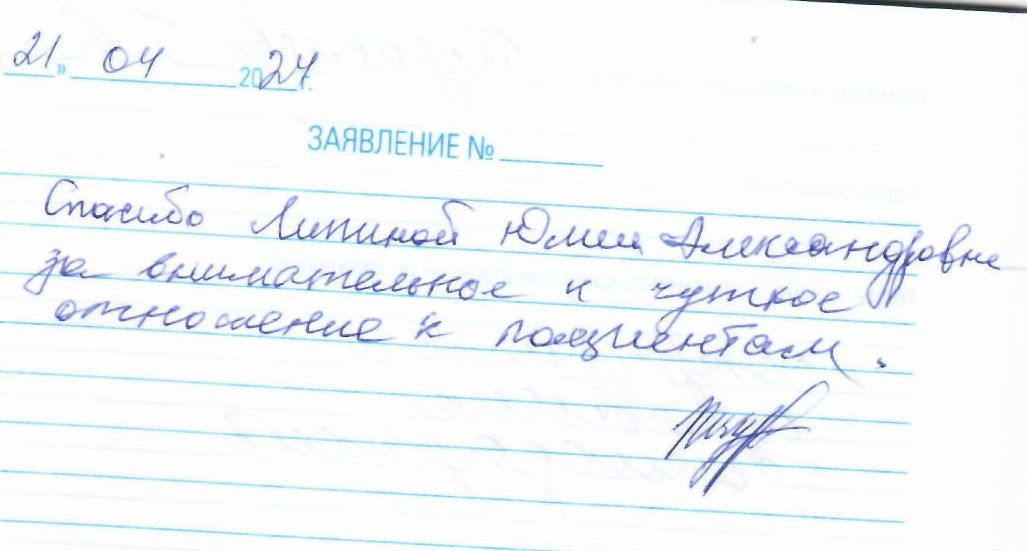 21 » 04 2024 г.
ЗАЯВЛЕНИЕ № ______
Спасибо Липиной Юлии Александровне
за внимательное и чуткое
отношение к пациентам.